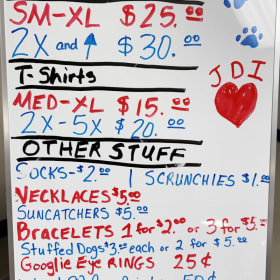 SM-XL $25.00
2X and ↑ $30.00
T-Shirts
JDI
MED-XL $15.00
2X-5X $20.00
OTHER STUFF
SOCKS-$2.00 | SCRUNCHIES $1.00
NECKLACES $5.00
SUNCATCHERS $5.00
BRACELETS 1 for $2.00 or 3 for $5.=
Stuffed Dogs $3.00 each or 2 for $5.00
Googlie Eye RINGS 25¢